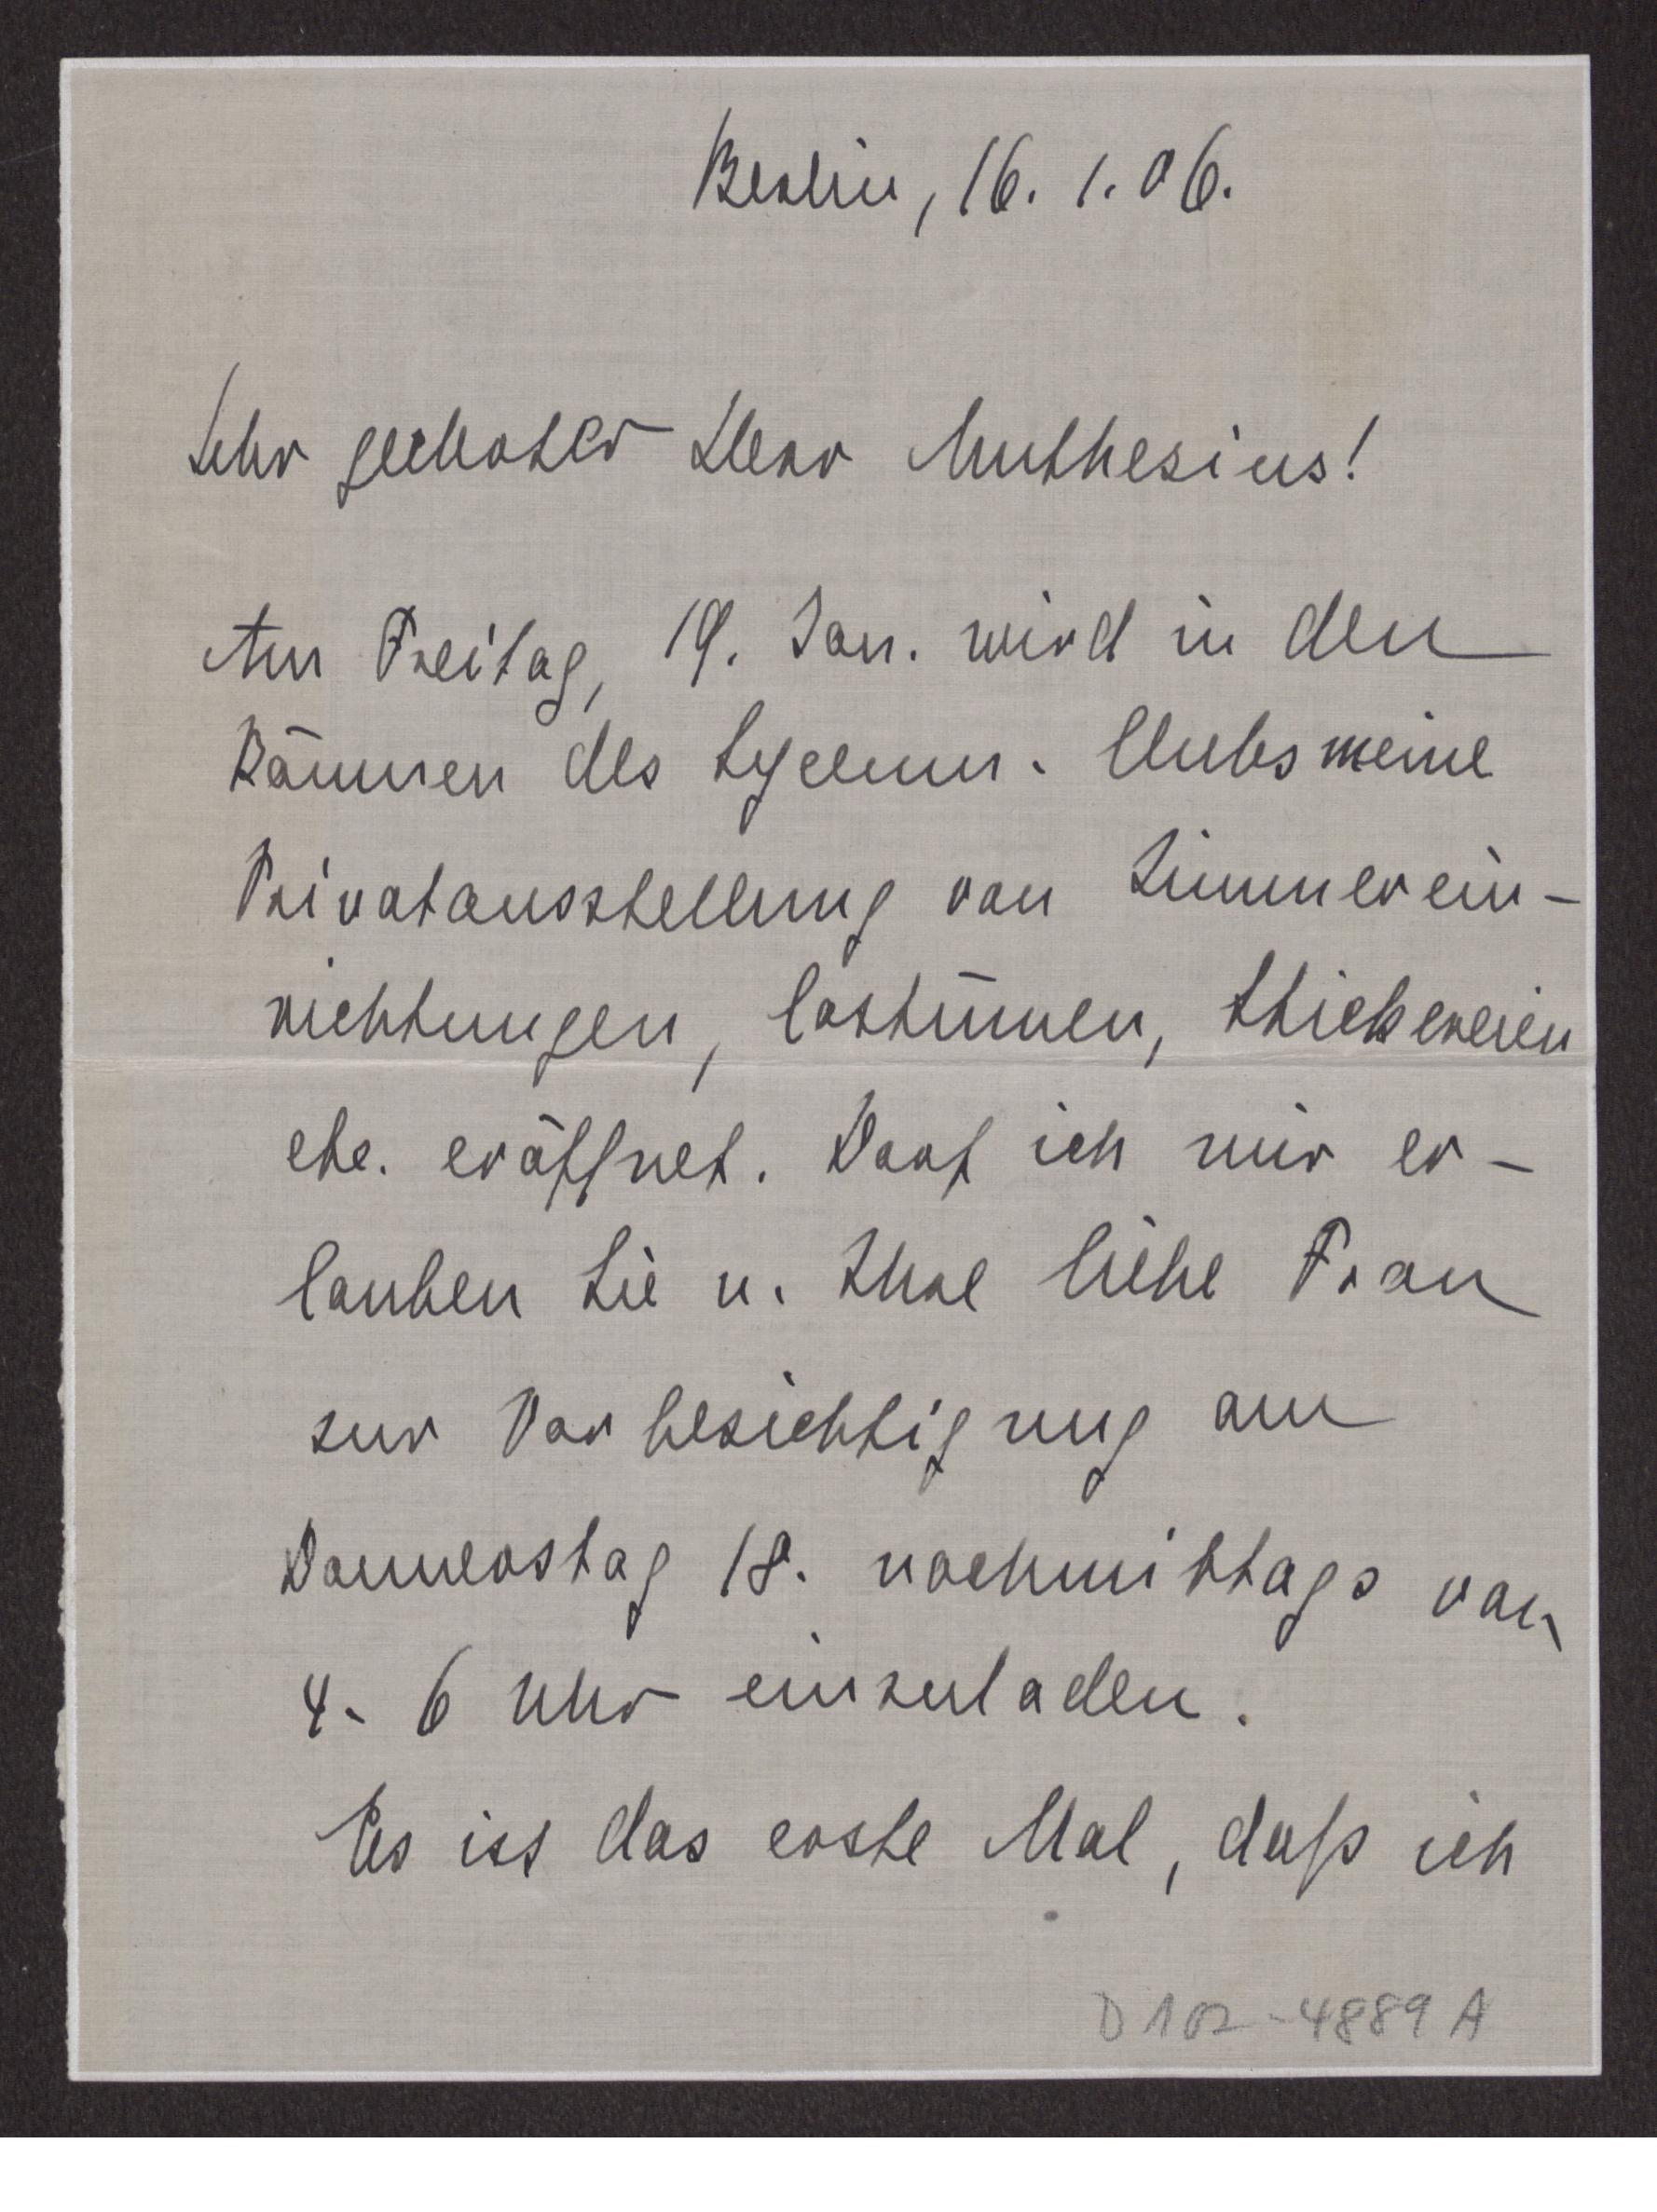 Berlin, 16. 1. 06.
Sehr geehrter Herr Muthesius!
Am Freitag, 19. Jan. wird in den
Räumen des Lyceum-Clubs meine
Privatausstellung von Zimmerein-
richtungen, Costümen, Stickereien
etc. eröffnet. Darf ich mir er-
lauben Sie u. Ihre liebe Frau
zur Vorbesichtigung am
Donnerstag 18. nachmittags von
4-6 Uhr einzuladen.
Es ist das erste Mal, daß ich
D102-4889 A